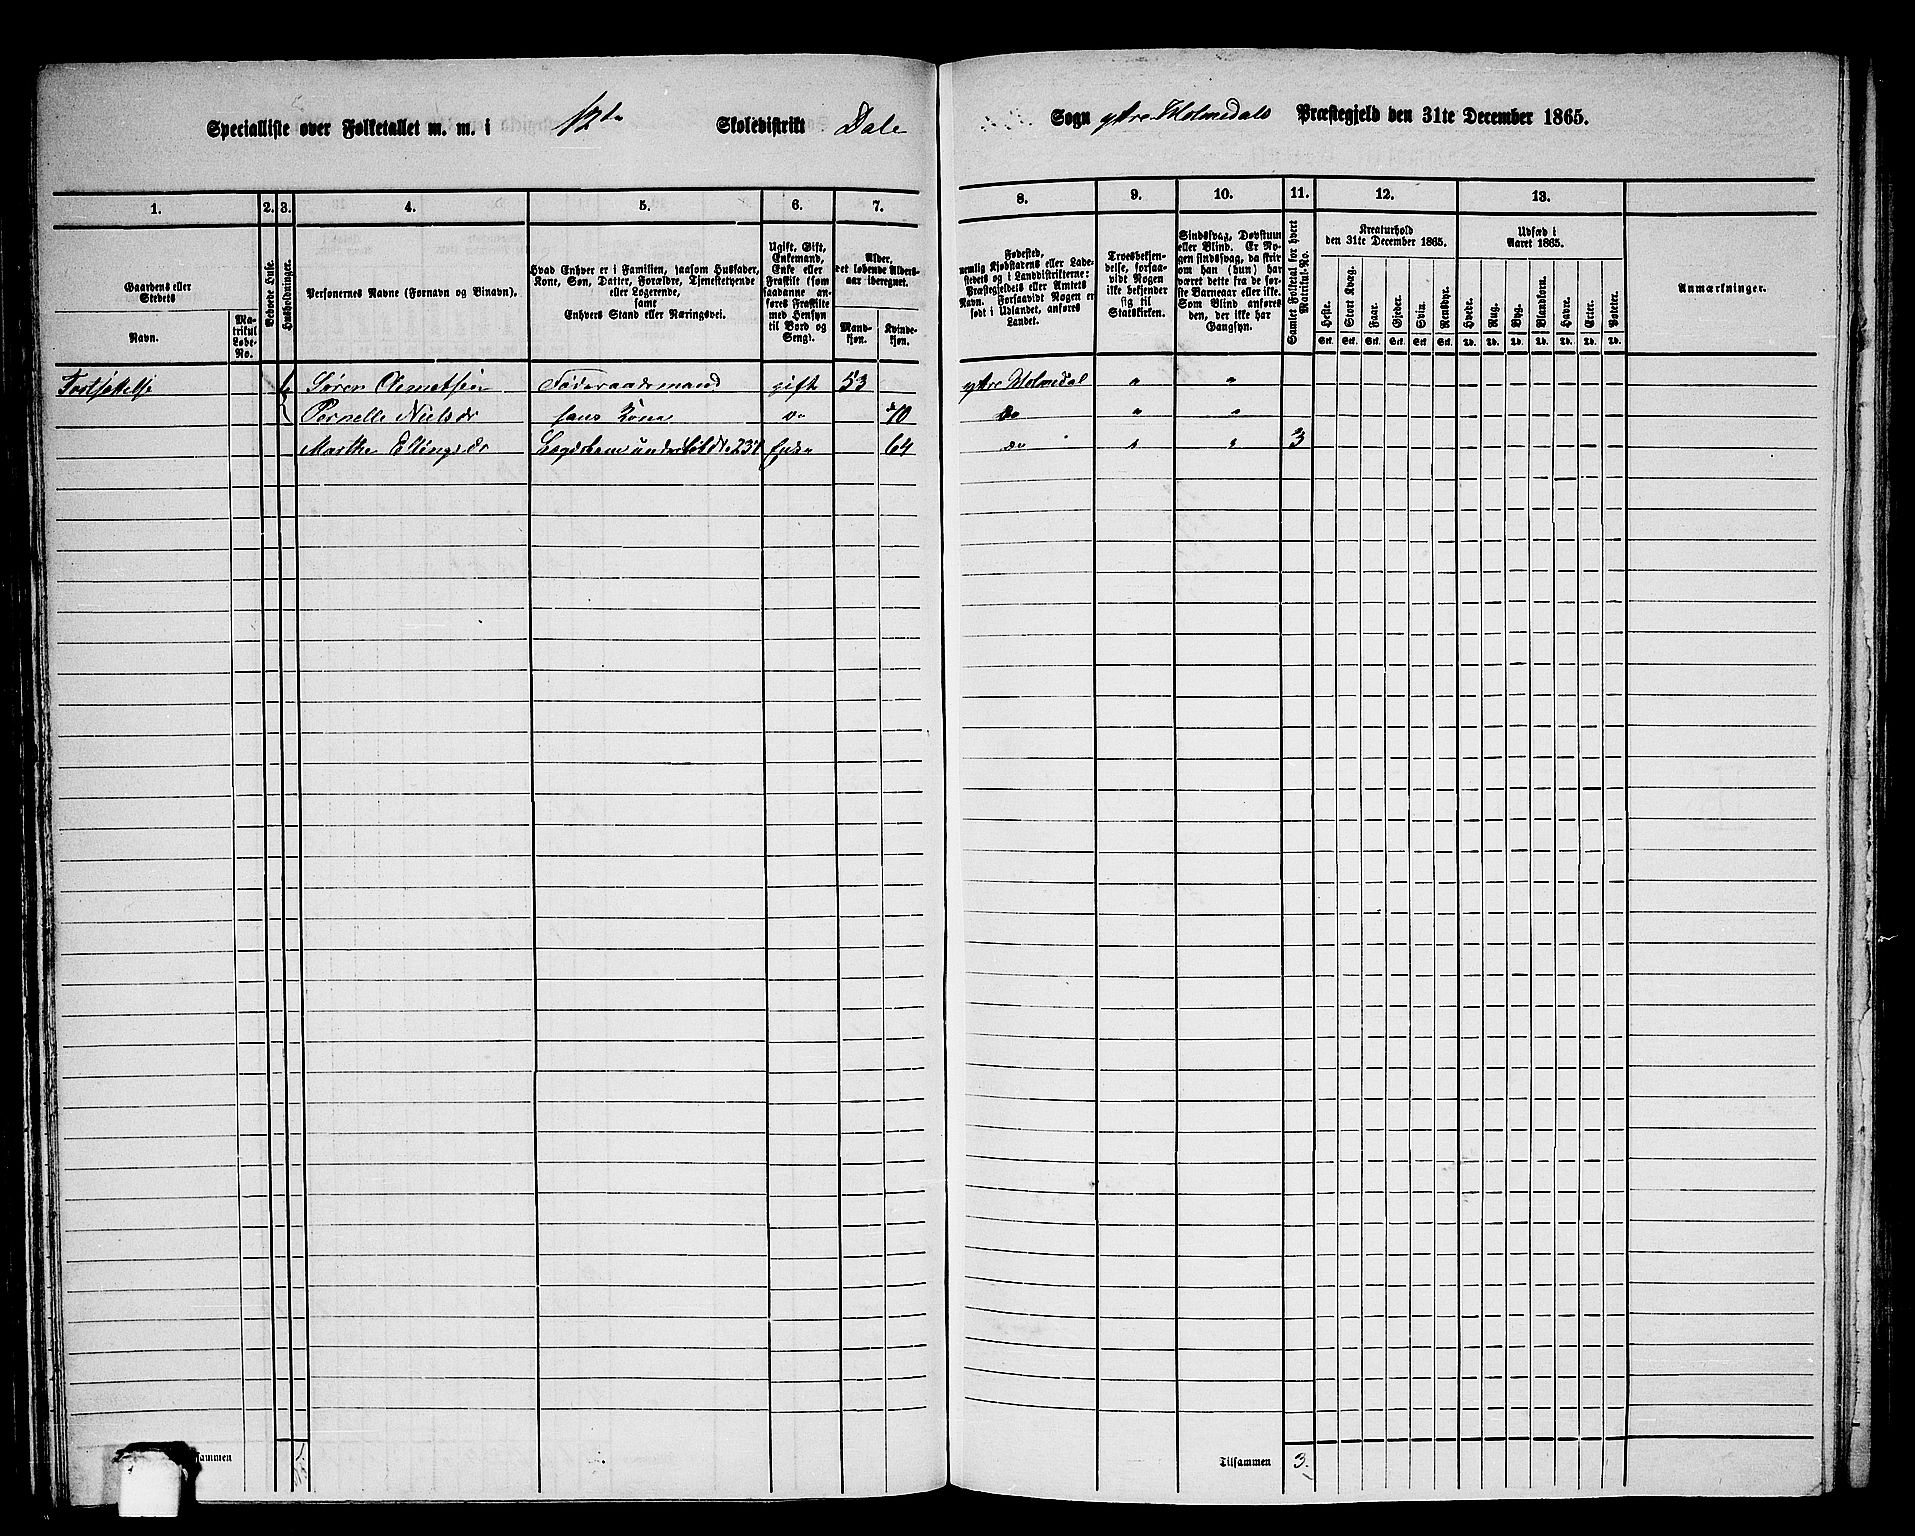 Specialliste over Folketallet m. m. i 12te Skoledistrikt Dale Sogn ytre Holmedals Præstegjeld den 31te December 1865.
1. 2. 3. 4. 5. 6. 7. 8. 9. 10. 11. 12. 13.
Gaardens eller Stedets
Navn.
Matrikul Løbe-No.
Beboede Huse.
Husholdninger.
Personernes Navne (Fornavn og Binavn).
Hvad Enhver er i Familien, saasom Husfader, Kone, Søn, Datter, Forældre, Tjenestetyende eller Logerende,
samt
Enhvers Stand eller Næringsvei.
Ugift, Gift, Enkemand, Enke eller Fraskilt (som saadanne anføres Fraskilte med Hensyn til Bord og Seng).
Alder, det løbende Aldersaar iberegnet.
Mandkjøn.
Kvindekjøn.
Fødested,
nemlig Kjøbstadens eller Ladestedets og i Landdistrikterne: Præstegjeldets eller Amtets Navn. Forsaavidt Nogen er født i Udlandet, anføres Landet.
Troesbekjendelse, forsaavidt Nogen ikke bekjender sig til Statskirken.
Sindssvag, Døvstum eller Blind. Er Nogen sindssvag, da skriv om han (hun) har været dette fra de første Barneaar eller ikke. Som Blind anføres den, der ikke har Gangsyn.
Samlet Folketal for hvert Matrikul-No.
Kreaturhold
den 31te December 1865.
Heste. Stort Kvæg. Faar. Gjeder. Svin. Rensdyr.
Stk. Stk. Stk. Stk. Stk. Stk.
Udsæd i
Aaret 1865.
Hvede. Rug. Byg. Blandkorn. Havre. Erter. Poteter.
Td. Td. Td. Td. Td. Td. Td.
Anmærkninger.
Søren Clemetsen Føderaadsmand gift 53 ytre Holmedal " "
Pernelle Nielsdr hans Kone do do " "
Marthe Ellingsdr Enke 64 do " " 3
Tilsammen 3.